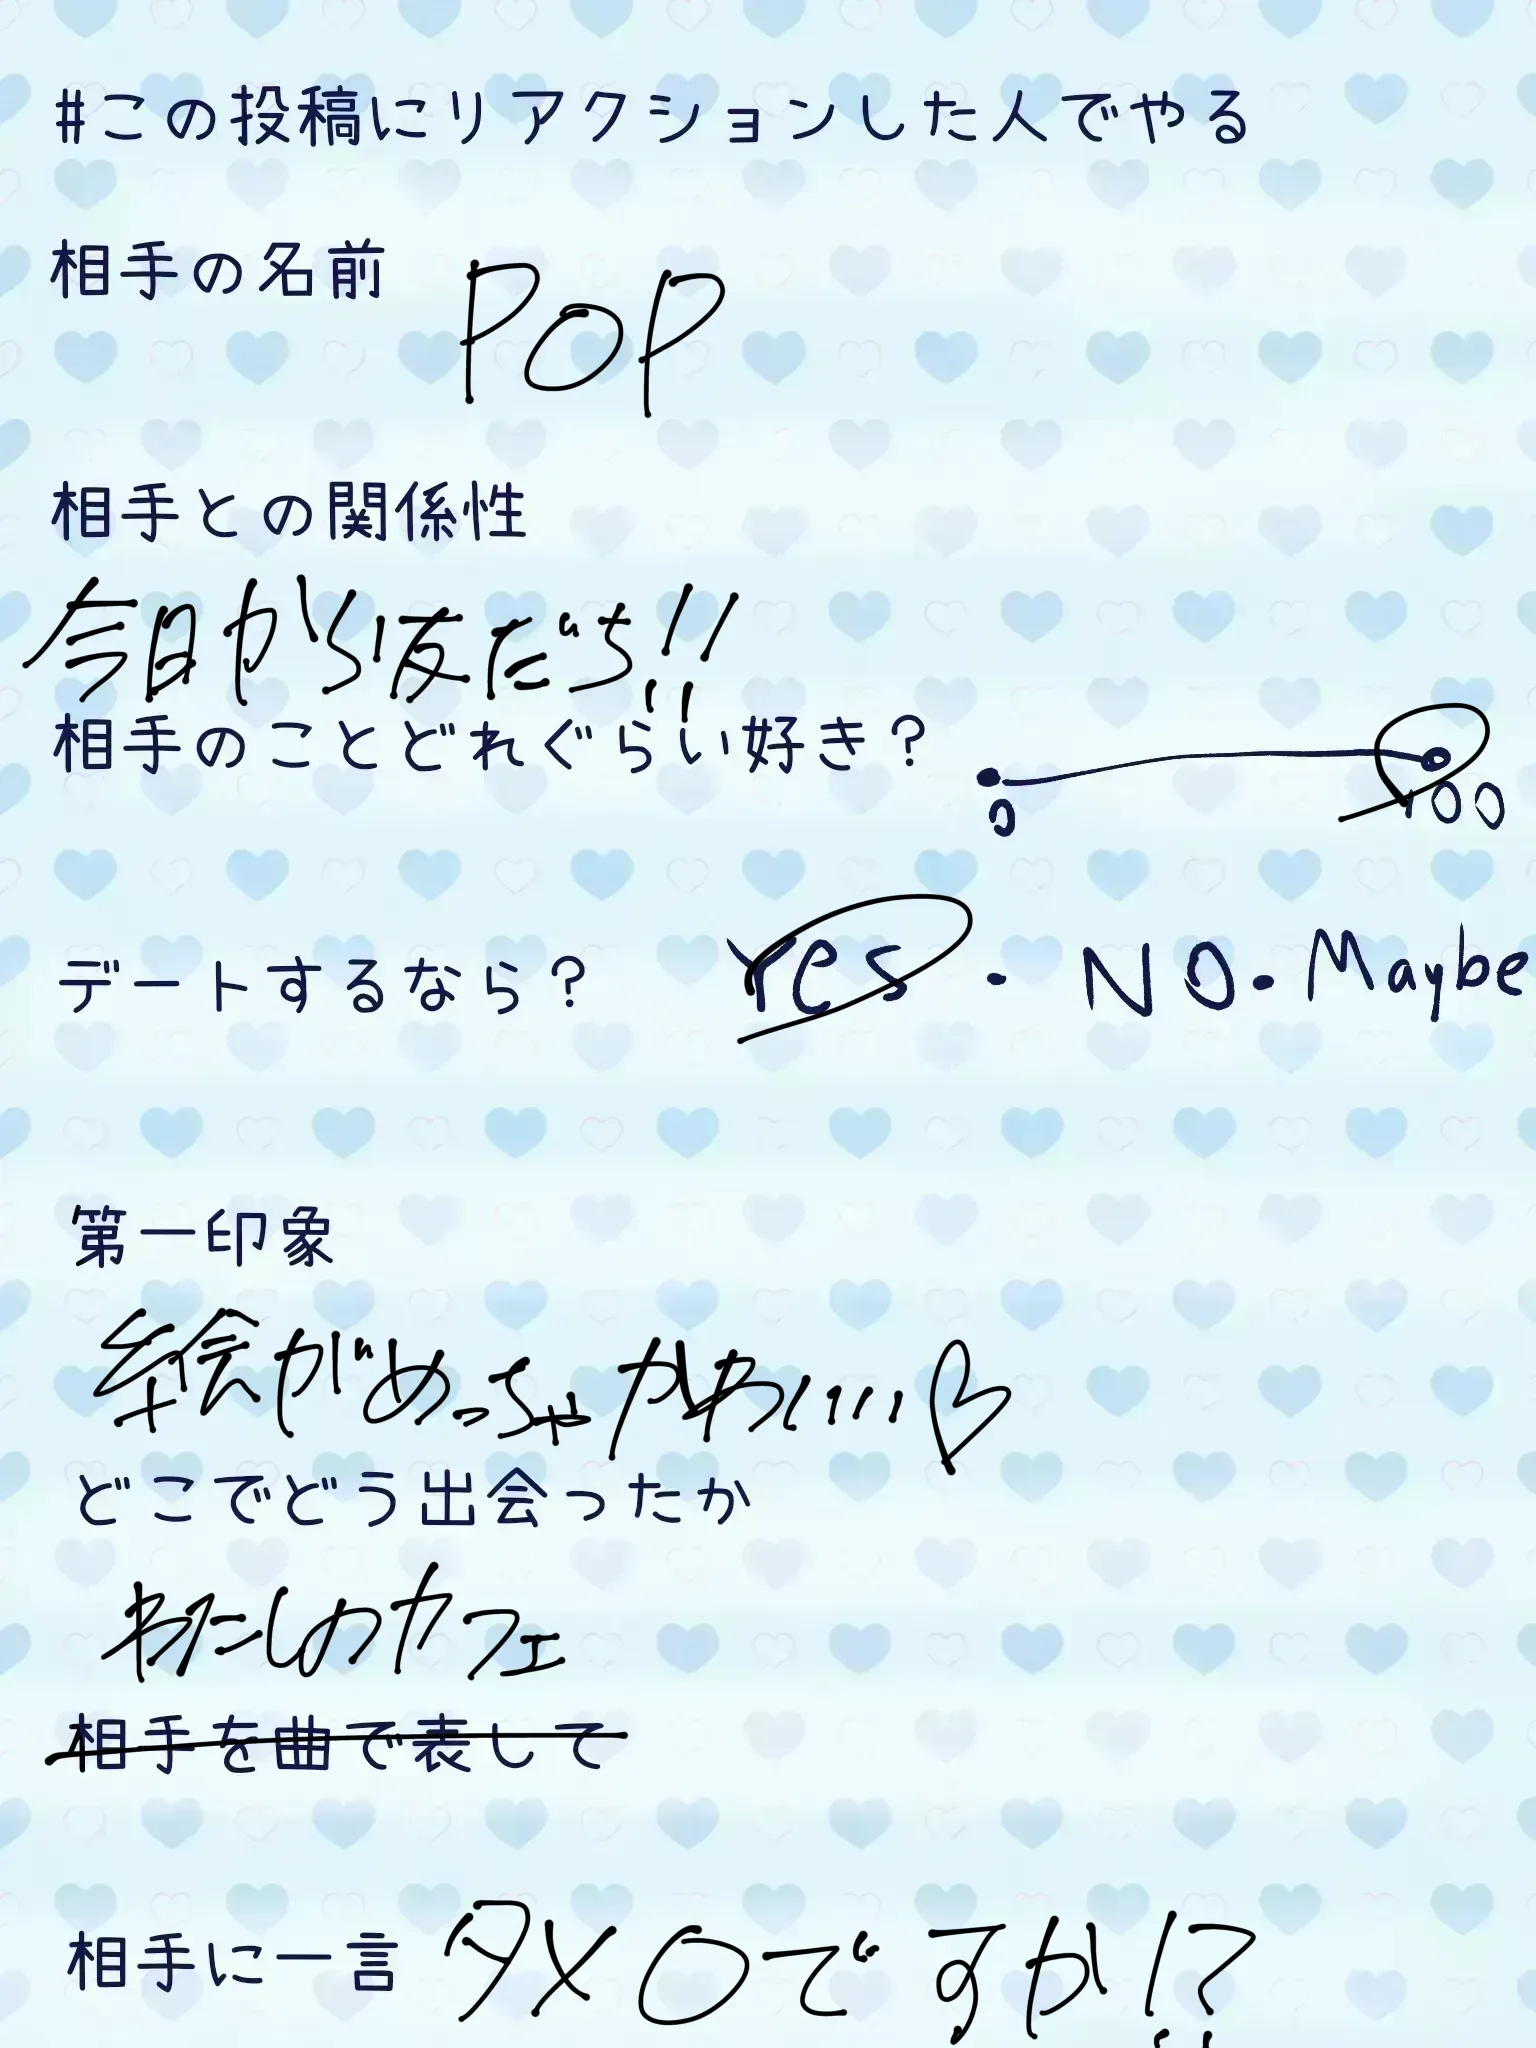 #この投稿にリアクションした人でやる
相手の名前 POP
相手との関係性
今日から友だち!!
相手のことどれぐらい好き? 0 100
デートするなら? Yes・NO・Maybe
第一印象
絵がめっちゃかわいい♡
どこでどう出会ったか
わたしのカフェ
相手を曲で表して
相手に一言 タメ口ですか!?